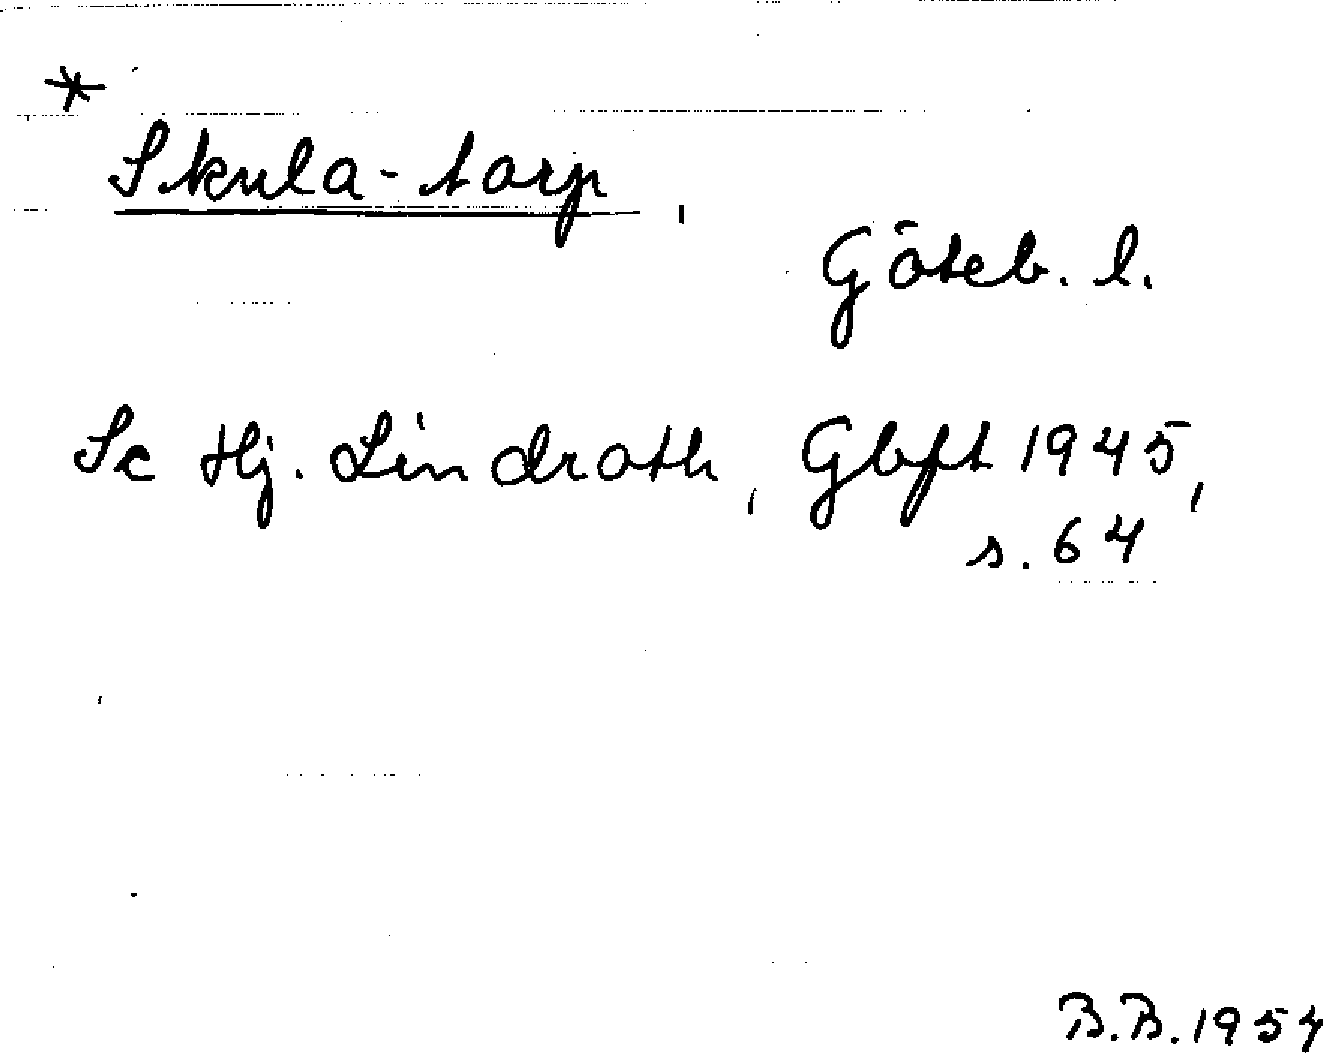 *
Skula-torp,
Göteb. l.
Se Hj. Lindroth, Gbft 1945,
s. 64
B.B. 1954